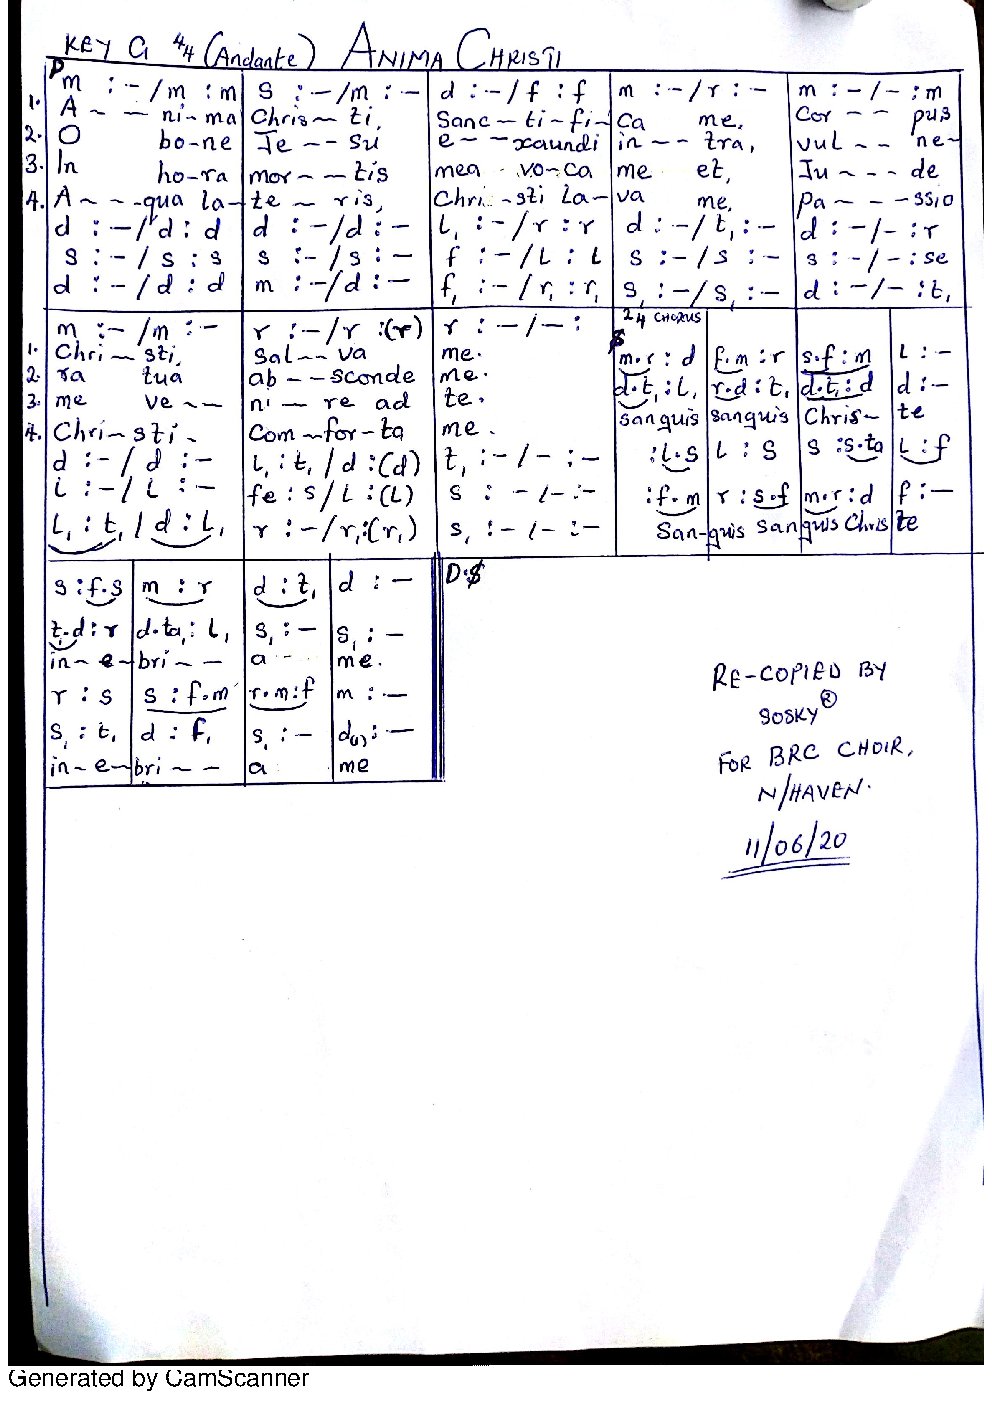 KEY G 4/4 (Andante) ANIMA CHRISTI
D
m : - / m : m | s : - / m : - | d : - / f : f | m : - / r : - | m : - / - : m
1. A - - ni - ma | Chris - ti, | Sanc - ti - fi - | Ca me. | Cor - - pus
2. O bo-ne | Je - - su | e - - xaundi | in - - tra, | vul - - ne-
3. In ho-ra | mor - - tis | mea vo-ca | me et, | Ju - - - de
4. A - - -qua la- | te - ris, | Chri - sti La- | va me, | Pa - - - ssio
d : - / d : d | d : - / d : - | l, : - / r : r | d : - / t, : - | d : - / - : r
s : - / s : s | s : - / s : - | f : - / L : L | s : - / s : - | s : - / - : se
d : - / d : d | m : - / d : - | f, : - / r, : r, | s, : - / s, : - | d : - / - : t,
2/4 CHORUS
m : - / m : - | r : - / r : (r) | r : - / - :
1. Chri - sti, | Sal - - va | me.
2. ra tua | ab - - sconde | me.
3. me ve - - | ni - re ad | te.
4. Chri - sti - | Com - for - ta | me.
d : - / d : - | L, : t, / d : (d) | t, : - / - : -
L : - / L : - | fe : s / L : (L) | s : - / - : -
L, : t, / d : L, | r : - / r, : (r,) | s, : - / - : -
$
m.r : d | f.m : r | s.f : m | L : -
d.t, : L, | r.d : t, | d.t, : d | d : -
Sanguis | Sanguis | Chris- | te
: L.s | L : S | s : s.ta | L : f
: f.m | r : s.f | m.r : d | f : -
San-guis Sanguis Chris te
s : f.s | m : r | d : t, | d : -
t,.d : r | d.ta, : L, | s, : - | s, : -
in - e - bri - - | a - | me.
r : s | s : f.m | r.m : f | m : -
s, : t, | d : f, | s, : - | d(,) : -
in - e - bri - - | a | me
D.$
RE-COPIED BY
SOSKY®
FOR BRC CHOIR,
N/HAVEN.
11/06/20
Generated by CamScanner